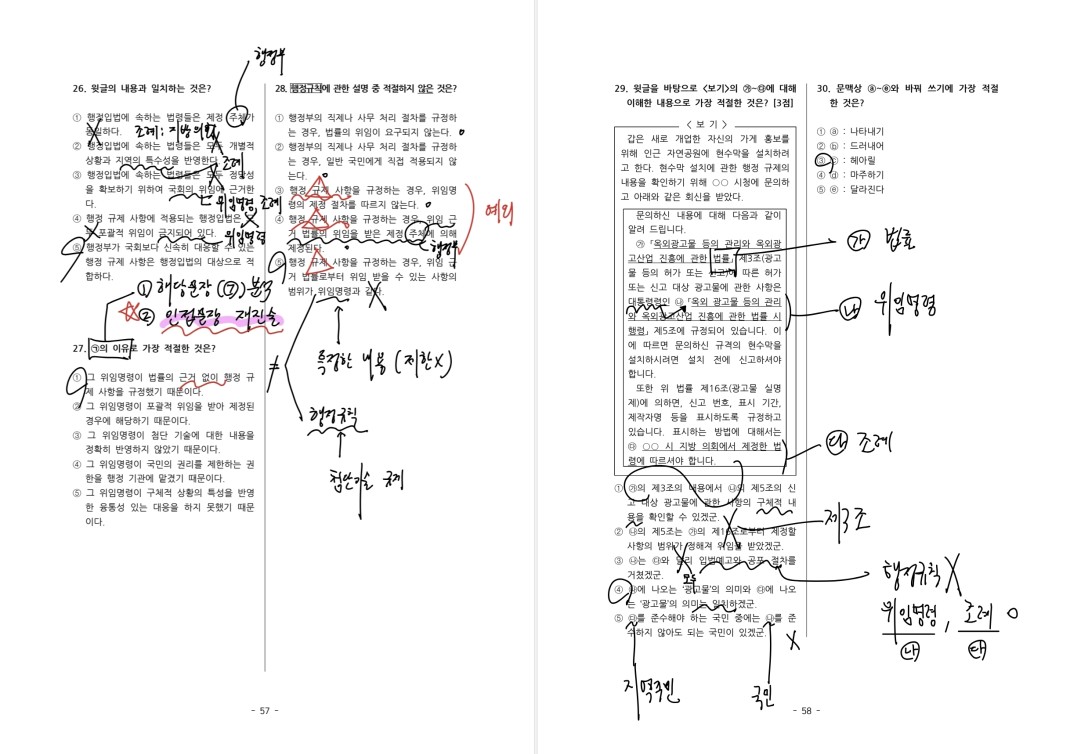 행정부
26. 윗글의 내용과 일치하는 것은?
① 행정입법에 속하는 법령들은 제정 주체가
동일하다.
조례: 지방의회
② 행정입법에 속하는 법령들은 모두 개별적
상황과 지역의 특수성을 반영한다.
조례
③ 행정입법에 속하는 법령들은 모두 정당성
을 확보하기 위하여 국회의 위임에 근거한
다.
위임명령 조례
④ 행정 규제 사항에 적용되는 행정입법은 모
두 포괄적 위임이 금지되어 있다.
위임명령
⑤ 행정부가 국회보다 신속히 대응할 수 있는
행정 규제 사항은 행정입법의 대상으로 적
합하다.
① 해당문장 (㉠) 분석
② 인접문장 재진술
27. ㉠의 이유로 가장 적절한 것은?
① 그 위임명령이 법률의 근거 없이 행정 규
제 사항을 규정했기 때문이다.
② 그 위임명령이 포괄적 위임을 받아 제정된
경우에 해당하기 때문이다.
③ 그 위임명령이 첨단 기술에 대한 내용을
정확히 반영하지 않았기 때문이다.
④ 그 위임명령이 국민의 권리를 제한하는 권
한을 행정 기관에 맡겼기 때문이다.
⑤ 그 위임명령이 구체적 상황의 특성을 반영
한 융통성 있는 대응을 하지 못했기 때문
이다.
28. 행정규칙에 관한 설명 중 적절하지 않은 것은?
① 행정부의 직제나 사무 처리 절차를 규정하
는 경우, 법률의 위임이 요구되지 않는다.
② 행정부의 직제나 사무 처리 절차를 규정하
는 경우, 일반 국민에게 직접 적용되지 않
는다.
③ 행정 규제 사항을 규정하는 경우, 위임명
령의 제정 절차를 따르지 않는다.
④ 행정 규제 사항을 규정하는 경우, 위임 근
거 법률의 위임을 받은 제정 주체에 의해
제정된다.
행정부
⑤ 행정 규제 사항을 규정하는 경우, 위임 근
거 법률로부터 위임 받을 수 있는 사항의
범위가 위임명령과 같다.
예외
≠
특정한 내용 (제한X)
행정규칙
첨단기술 규제
- 57 -
29. 윗글을 바탕으로 <보기>의 ㉮~㉰에 대해
이해한 내용으로 가장 적절한 것은? [3점]
< 보 기 >
갑은 새로 개업한 자신의 가게 홍보를
위해 인근 자연공원에 현수막을 설치하려
고 한다. 현수막 설치에 관한 행정 규제의
내용을 확인하기 위해 ○○ 시청에 문의하
고 아래와 같은 회신을 받았다.
문의하신 내용에 대해 다음과 같이
알려 드립니다.
㉮ 「옥외광고물 등의 관리와 옥외광
고산업 진흥에 관한 법률」 제3조(광고
물 등의 허가 또는 신고)에 따른 허가
또는 신고 대상 광고물에 관한 사항은
대통령령인 ㉯ 「옥외 광고물 등의 관리
와 옥외광고산업 진흥에 관한 법률 시
행령」 제5조에 규정되어 있습니다. 이
에 따르면 문의하신 규격의 현수막을
설치하시려면 설치 전에 신고하셔야
합니다.
또한 위 법률 제16조(광고물 실명
제)에 의하면, 신고 번호, 표시 기간,
제작자명 등을 표시하도록 규정하고
있습니다. 표시하는 방법에 대해서는
㉰ ○○ 시 지방 의회에서 제정한 법
령에 따르셔야 합니다.
㉮ 법률
㉯ 위임명령
㉰ 조례
① ㉮의 제3조의 내용에서 ㉯의 제5조의 신
고 대상 광고물에 관한 사항의 구체적 내
용을 확인할 수 있겠군.
② ㉯의 제5조는 ㉮의 제16조로부터 제정할
사항의 범위가 정해져 위임을 받았겠군.
제3조
③ ㉯는 ㉰와 달리 입법예고와 공포 절차를
거쳤겠군.
모두
행정규칙 X
위임명령, 조례 O
㉯ ㉰
④ ㉯에 나오는 '광고물'의 의미와 ㉰에 나오
는 '광고물'의 의미는 일치하겠군.
⑤ ㉰를 준수해야 하는 국민 중에는 ㉯를 준
수하지 않아도 되는 국민이 있겠군.
X
지역주민
국민
30. 문맥상 ⓐ~ⓔ와 바꿔 쓰기에 가장 적절
한 것은?
① ⓐ : 나타내기
② ⓑ : 드러내어
③ ⓒ : 헤아릴
④ ⓓ : 마주하기
⑤ ⓔ : 달라진다
- 58 -